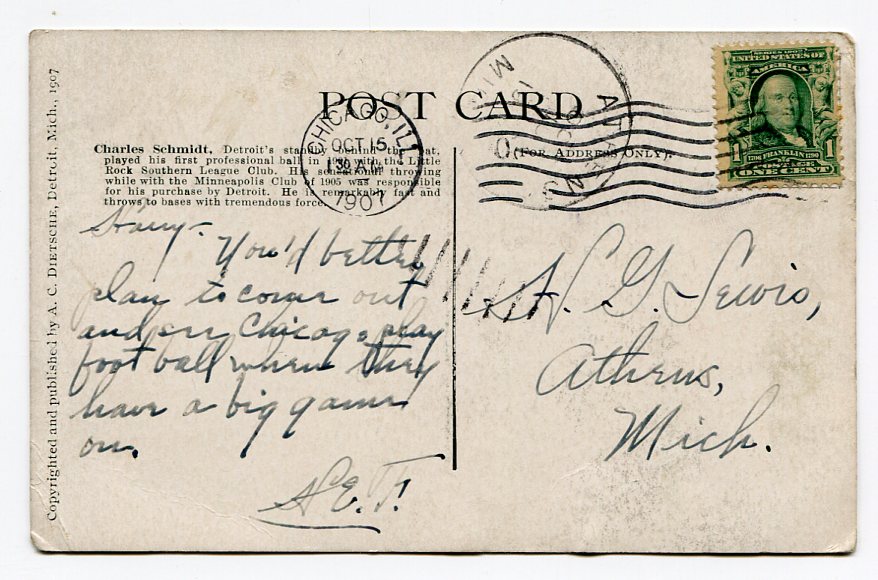 POST CARD
CHICAGO, ILL
OCT 15
1907
MICH
(FOR ADDRESS ONLY)
SERIES 1902
UNITED STATES OF
AMERICA
1 1706 FRANKLIN 1790 1
POSTAGE
ONE CENT
Charles Schmidt, Detroit's standby behind the bat,
played his first professional ball in with the Little
Rock Southern League Club. His sensational throwing
while with the Minneapolis Club of 1905 was responsible
for his purchase by Detroit. He is remarkably fast and
throws to bases with tremendous force.
Harry-
You'd better
plan to come out
and see Chicago play
foot ball when they
have a big game
on.
H.E.T.
H. G. Lewis,
Athens,
Mich.
Copyrighted and published by A. C. DIETSCHE, Detroit, Mich., 1907